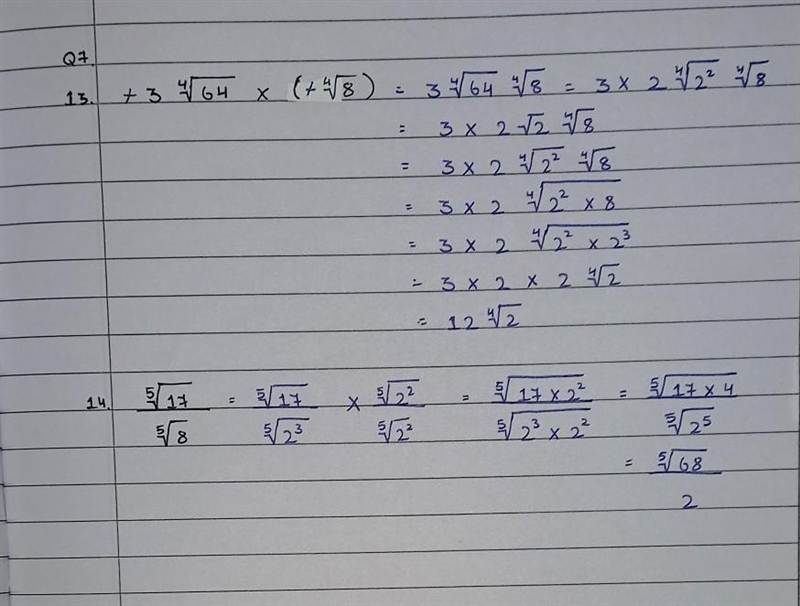 Q7.
13. + 3 ∜64 × (+ ∜8) = 3 ∜64 ∜8 = 3 × 2 ∜2² ∜8
= 3 × 2 √2 ∜8
= 3 × 2 ∜2² ∜8
= 3 × 2 ∜(2² × 8)
= 3 × 2 ∜(2² × 2³)
= 3 × 2 × 2 ∜2
= 12 ∜2
14. ⁵√17 / ⁵√8 = ⁵√17 / ⁵√2³ × ⁵√2² / ⁵√2² = ⁵√(17 × 2²) / ⁵√(2³ × 2²) = ⁵√(17 × 4) / ⁵√2⁵
= ⁵√68 / 2